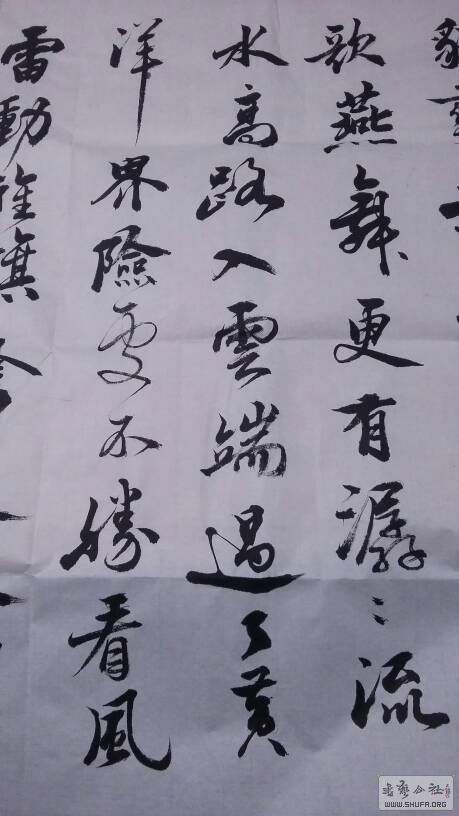 貌變
歌燕舞更有潺〻流
水高路入雲端過了黃
洋界險處不勝看風
雷動旌旗奮
書藝公社
WWW.SHUFA.ORG